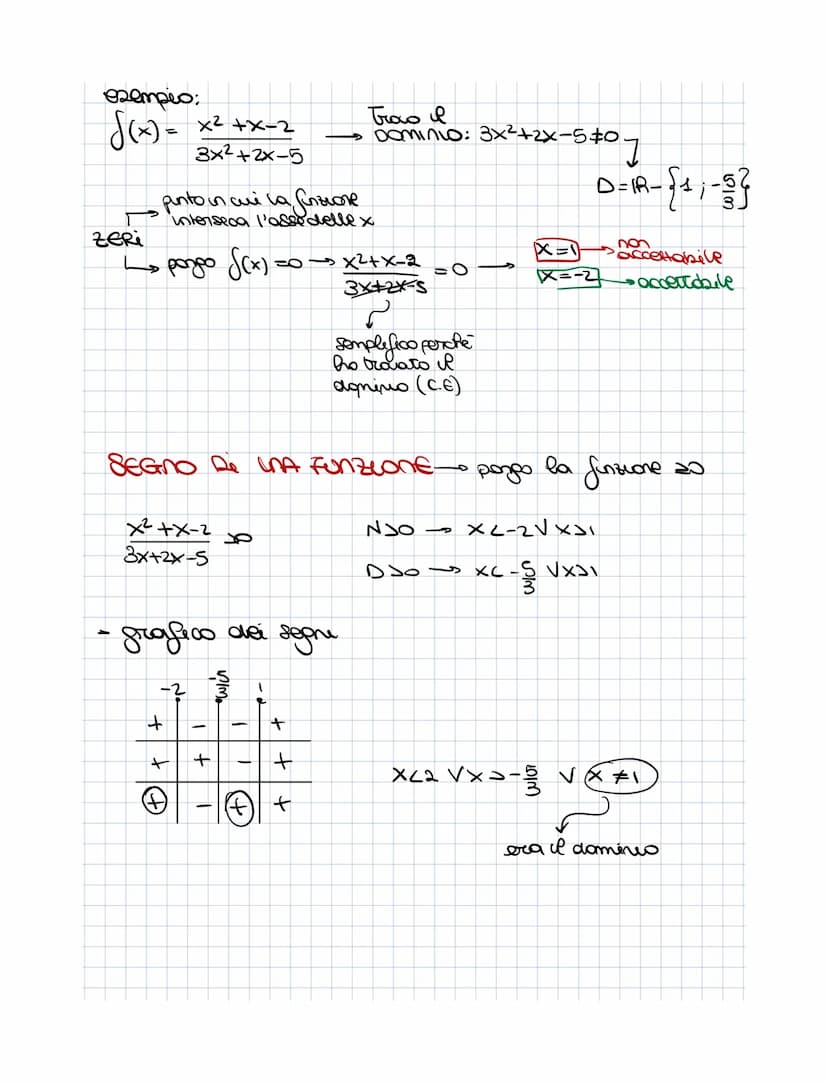 esempio:
f(x) = x² + x - 2 / 3x² + 2x - 5 → Trovo il dominio: 3x² + 2x - 5 ≠ 0
D = ℝ - {1 ; -5/3}
punto in cui la funzione
interseca l'asse delle x
ZERI
↳ pongo f(x) = 0 → x² + x - 2 / 3x + 2x - 5 = 0 → x = 1 → non accettabile
x = -2 → accettabile
semplifico perchè
ho trovato il
dominio (C.E)
SEGNO DI UNA FUNZIONE → pongo la funzione ≥0
x² + x - 2 / 3x + 2x - 5 >0
N>0 → x < -2 ∨ x > 1
D>0 → x < -5/3 ∨ x > 1
- grafico dei segni
-2 -5/3 1
+ - - +
+ + - +
+ - + +
x < 2 ∨ x > -5/3 ∨ x ≠ 1
era il dominio